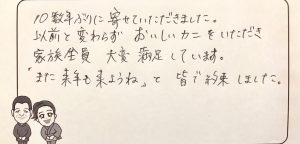 10数年ぶりに寄せていただきました。
以前と変わらず おいしいカニをいただき
家族全員 大変 満足しています。
「また来年も来ようね」と 皆で約束しました。